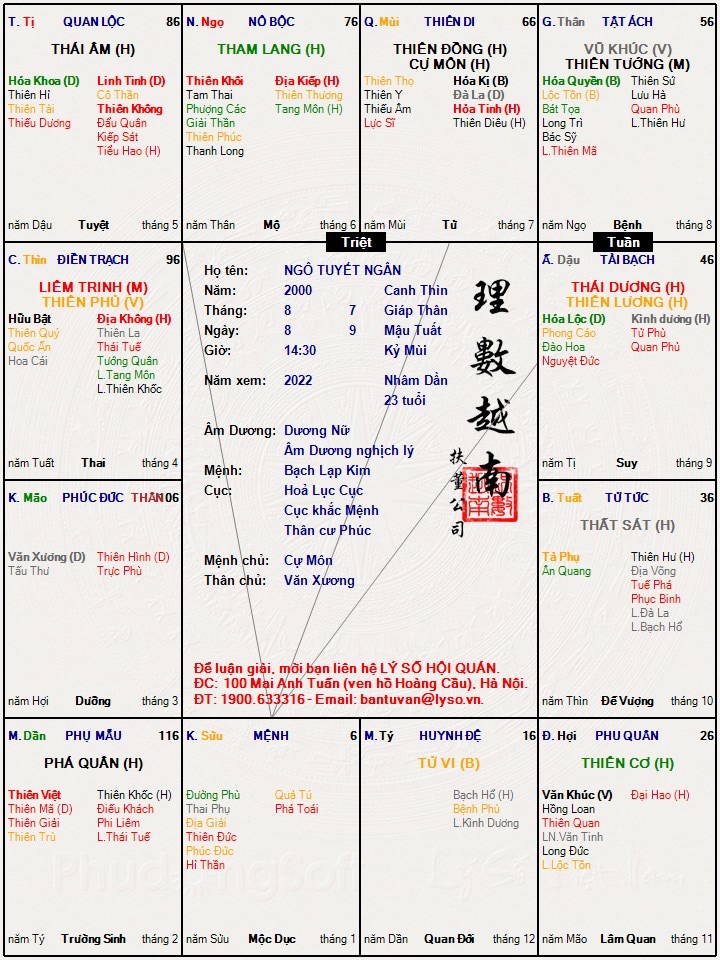 T. Tị QUAN LỘC 86
THÁI ÂM (H)
Hóa Khoa (D) Linh Tinh (D)
Thiên Hỉ Cô Thần
Thiên Tài Thiên Không
Thiếu Dương Đẩu Quân
Kiếp Sát
Tiểu Hao (H)
năm Dậu Tuyệt tháng 5
N. Ngọ NÔ BỘC 76
THAM LANG (H)
Thiên Khôi Địa Kiếp (H)
Tam Thai Thiên Thương
Phượng Các Tang Môn (H)
Giải Thần
Thiên Phúc
Thanh Long
năm Thân Mộ tháng 6
Q. Mùi THIÊN DI 66
THIÊN ĐỒNG (H)
CỰ MÔN (H)
Thiên Thọ Hóa Kị (B)
Thiên Y Đà La (D)
Thiếu Âm Hỏa Tinh (H)
Lực Sĩ Thiên Diêu (H)
năm Mùi Tử tháng 7
G. Thân TẬT ÁCH 56
VŨ KHÚC (V)
THIÊN TƯỚNG (M)
Hóa Quyền (B) Thiên Sứ
Lộc Tồn (B) Lưu Hà
Bát Tọa Quan Phủ
Long Trì L.Thiên Hư
Bác Sỹ
L.Thiên Mã
năm Ngọ Bệnh tháng 8
Triệt
Tuần
C. Thìn ĐIỀN TRẠCH 96
LIÊM TRINH (M)
THIÊN PHỦ (V)
Hữu Bật Địa Không (H)
Thiên Quý Thiên La
Quốc Ấn Thái Tuế
Hoa Cái Tướng Quân
L.Tang Môn
L.Thiên Khốc
năm Tuất Thai tháng 4
Họ tên: NGÔ TUYẾT NGÂN
Năm: 2000 Canh Thìn
Tháng: 8 7 Giáp Thân
Ngày: 8 9 Mậu Tuất
Giờ: 14:30 Kỷ Mùi
Năm xem: 2022 Nhâm Dần
23 tuổi
Âm Dương: Dương Nữ
Âm Dương nghịch lý
Mệnh: Bạch Lạp Kim
Cục: Hoả Lục Cục
Cục khắc Mệnh
Thân cư Phúc
Mệnh chủ: Cự Môn
Thân chủ: Văn Xương
理數越南
扶董公司
Để luận giải, mời bạn liên hệ LÝ SỐ HỘI QUÁN.
ĐC: 100 Mai Anh Tuấn (ven hồ Hoàng Cầu), Hà Nội.
ĐT: 1900.633316 - Email: bantuvan@lyso.vn.
Ấ. Dậu TÀI BẠCH 46
THÁI DƯƠNG (H)
THIÊN LƯƠNG (H)
Hóa Lộc (D) Kình dương (H)
Phong Cáo Tử Phù
Đào Hoa Quan Phủ
Nguyệt Đức
năm Tị Suy tháng 9
K. Mão PHÚC ĐỨC THÂN 106
Văn Xương (D) Thiên Hình (D)
Tấu Thư Trực Phù
năm Hợi Dưỡng tháng 3
B. Tuất TỬ TỨC 36
THẤT SÁT (H)
Tả Phụ Thiên Hư (H)
Ân Quang Địa Võng
Tuế Phá
Phục Binh
L.Đà La
L.Bạch Hổ
năm Thìn Đế Vượng tháng 10
M. Dần PHỤ MẪU 116
PHÁ QUÂN (H)
Thiên Việt Thiên Khốc (H)
Thiên Mã (D) Điếu Khách
Thiên Giải Phi Liêm
Thiên Trù L.Thái Tuế
năm Tý Trường Sinh tháng 2
K. Sửu MỆNH 6
Đường Phù Quả Tú
Thai Phụ Phá Toái
Địa Giải
Thiên Đức
Phúc Đức
Hỉ Thần
năm Sửu Mộc Dục tháng 1
M. Tý HUYNH ĐỆ 16
TỬ VI (B)
Bạch Hổ (H)
Bệnh Phù
L.Kình Dương
năm Dần Quan Đới tháng 12
Đ. Hợi PHU QUÂN 26
THIÊN CƠ (H)
Văn Khúc (V) Đại Hao (H)
Hồng Loan
Thiên Quan
LN.Văn Tinh
Long Đức
L.Lộc Tồn
năm Mão Lâm Quan tháng 11